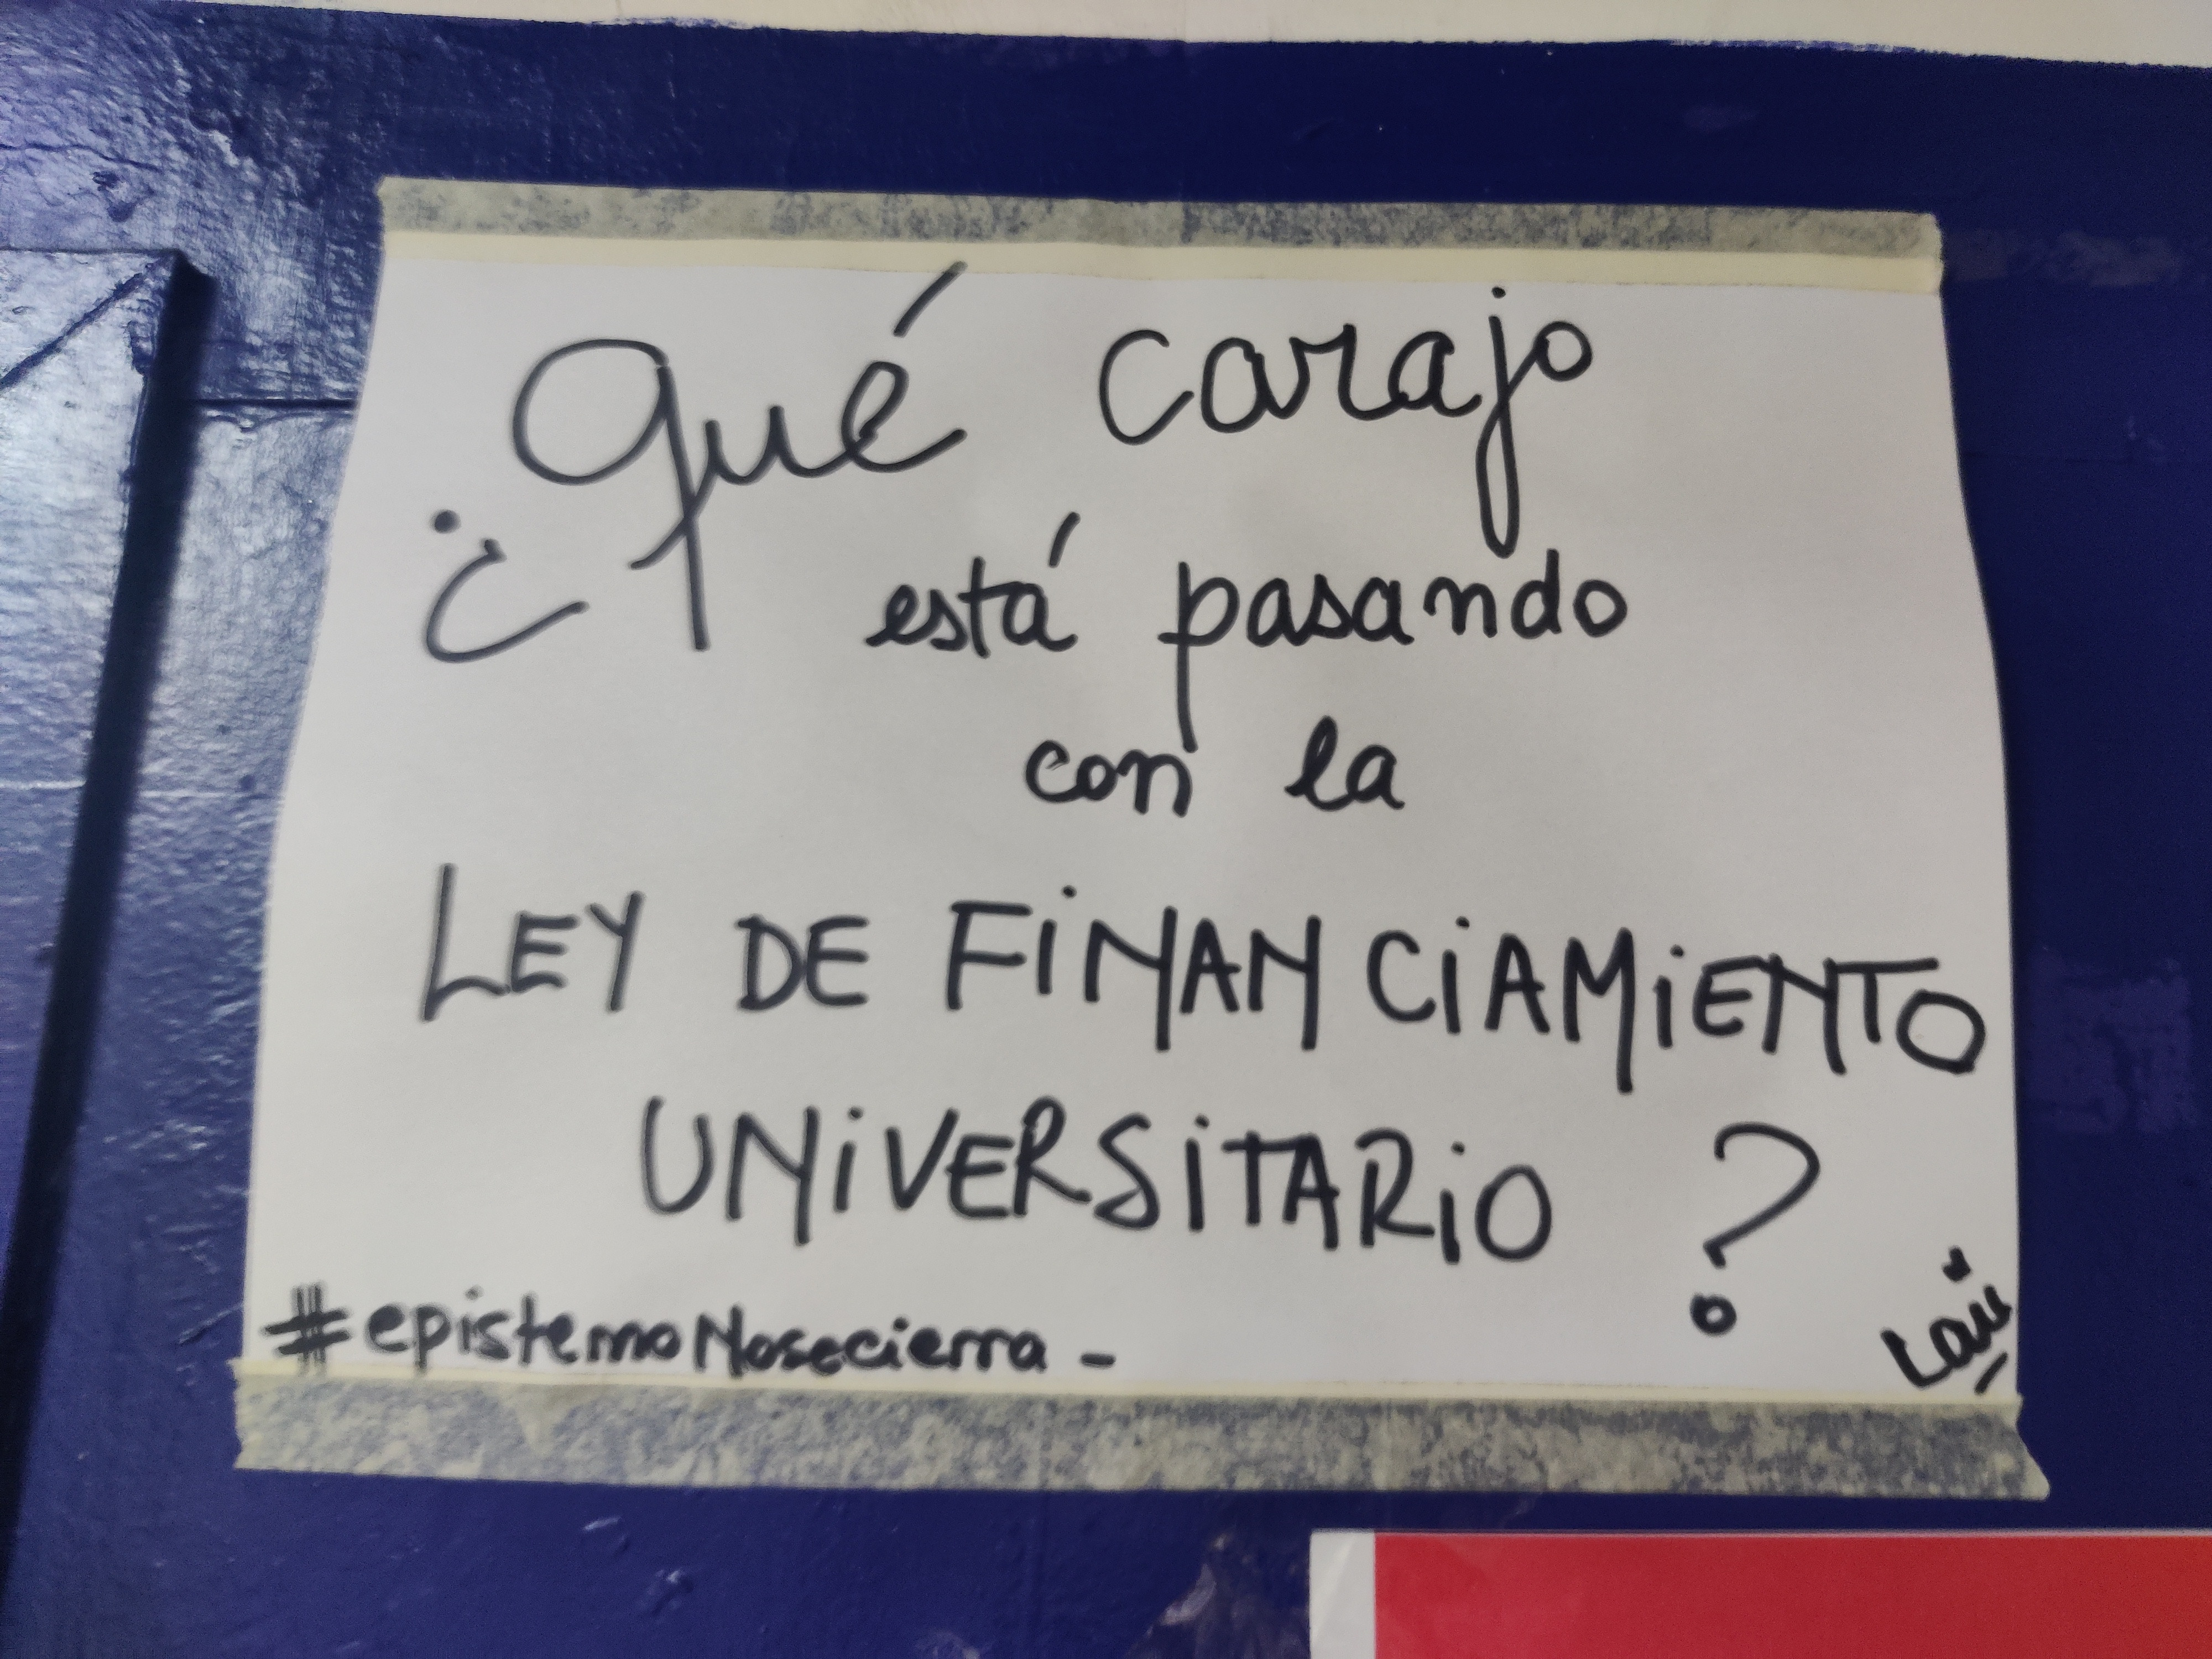 ¿Qué carajo
está pasando
con la
LEY DE FINANCIAMIENTO
UNIVERSITARIO ?
#epistemoNosecierra -